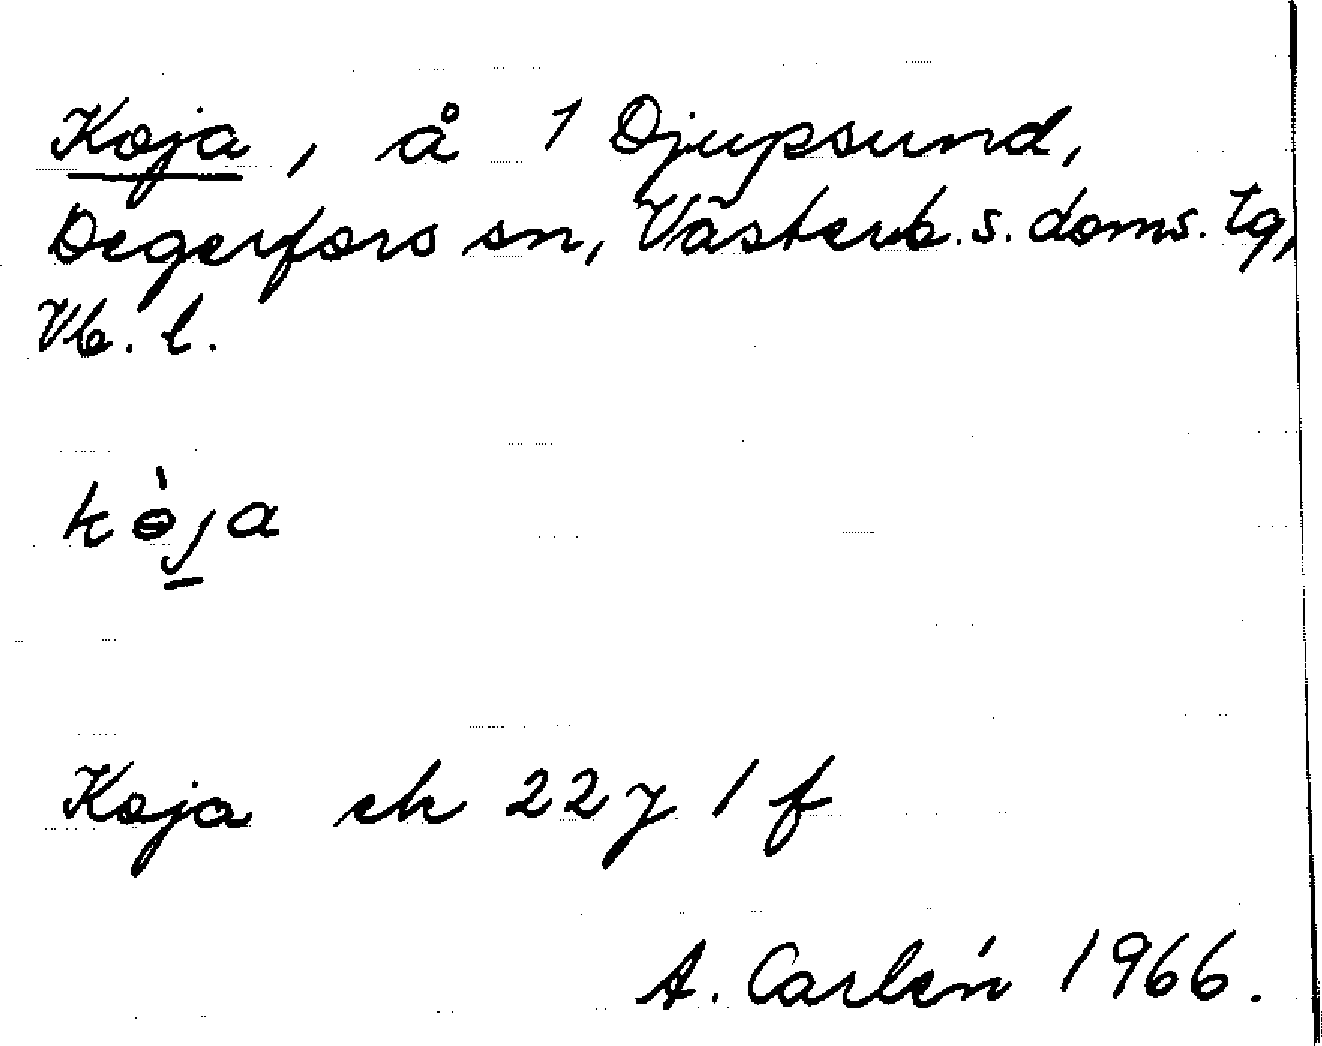 Koja, å 1 Djupsund,
Degerfors sn, Västerb. s. doms. tg,
Vb. l.
kòja
Koja ek 22 7 1 f
A. Carlén 1966.